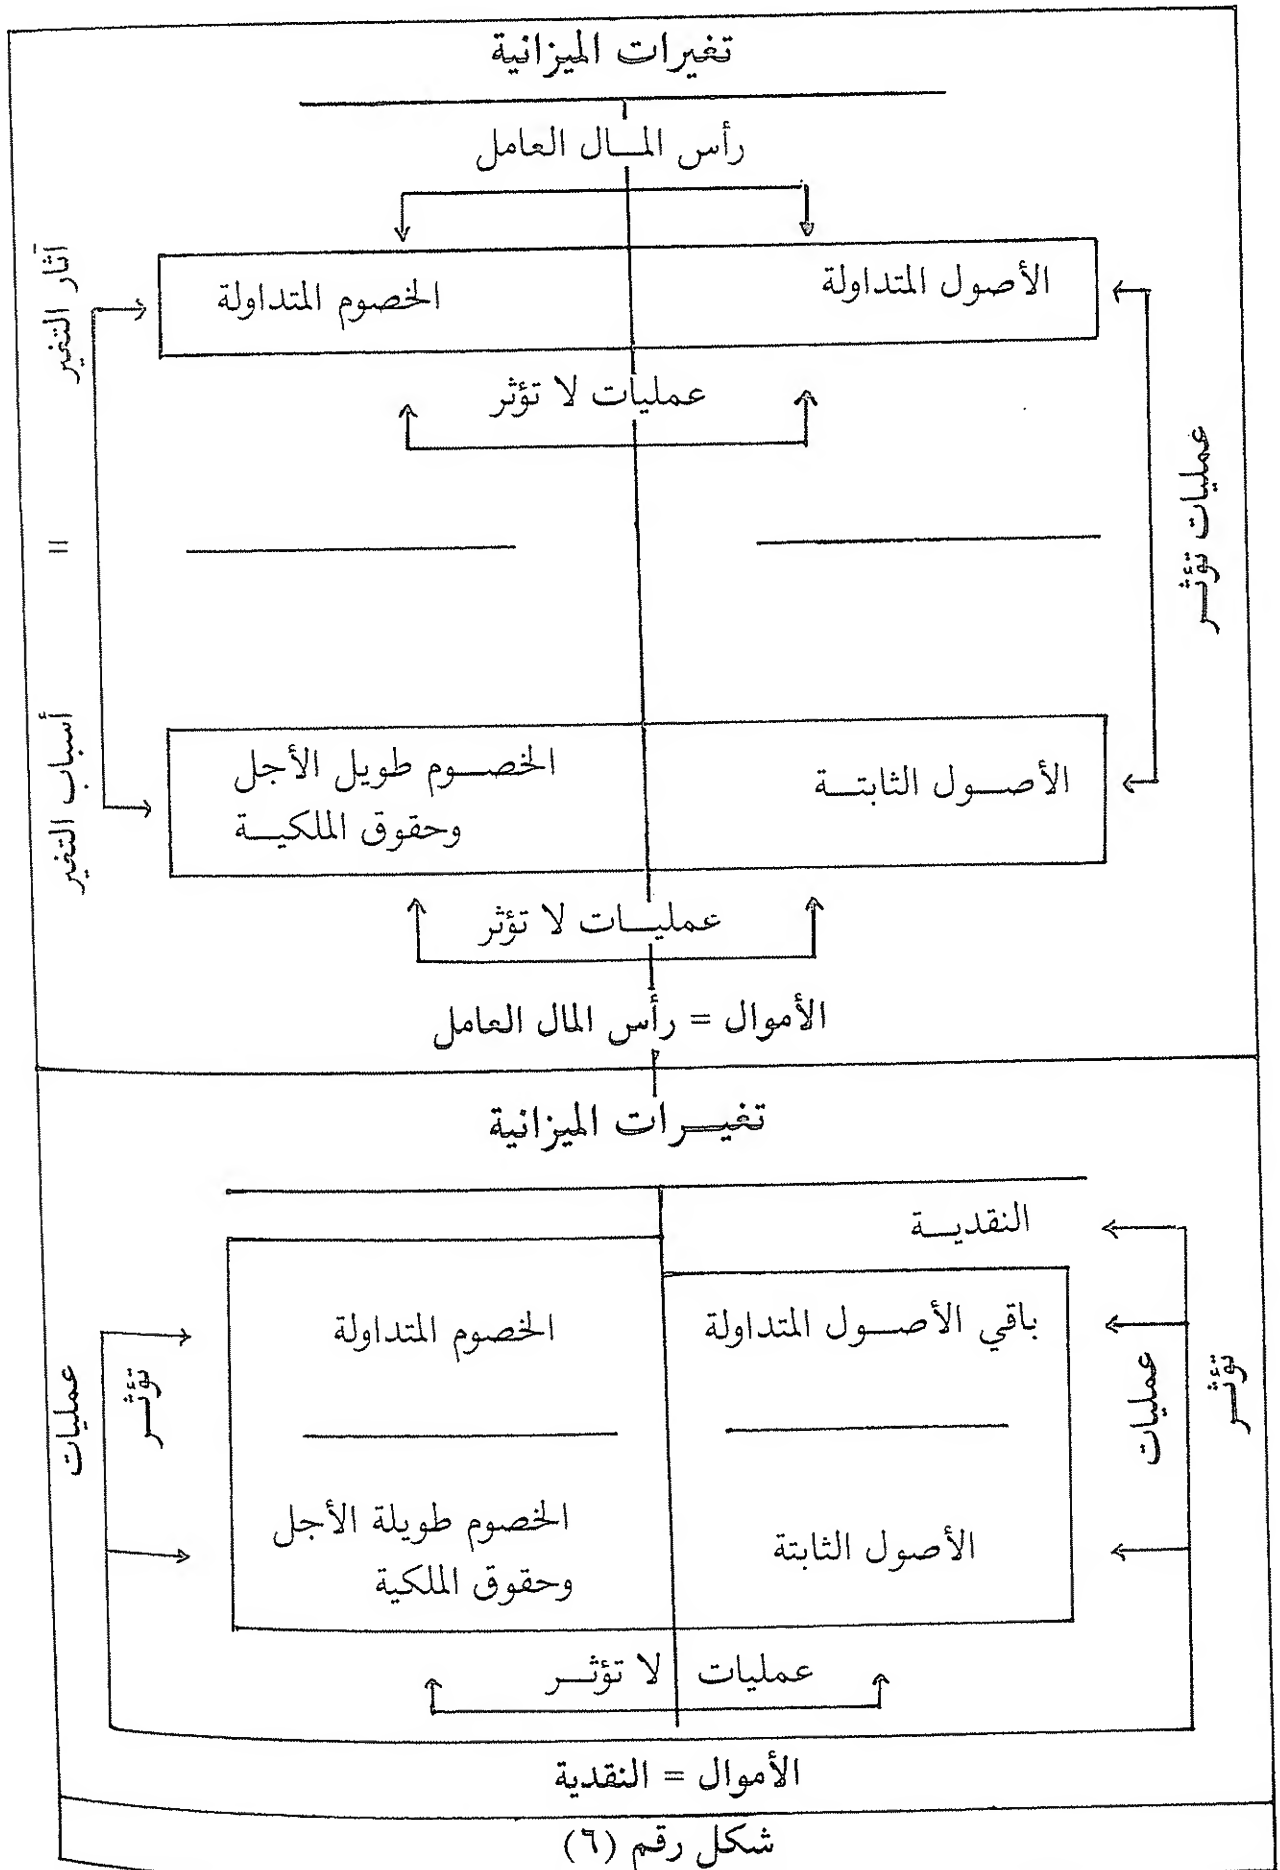 تغيرات الميزانية
رأس المــال العامل
الأصول المتداولة
الخصوم المتداولة
آثار التغير
عمليات لا تؤثر
عمليات تؤثــر
=
أسباب التغير
الأصــول الثابتــة
الخصــوم طويل الأجل
وحقوق الملكيــة
عمليــات لا تؤثر
الأموال = رأس المال العامل
تغيــرات الميزانية
النقديــة
باقي الأصــول المتداولة
الخصوم المتداولة
عمليات
تؤثــر
عمليات
تؤثــر
الأصول الثابتة
الخصوم طويلة الأجل
وحقوق الملكية
عمليات لا تؤثــر
الأموال = النقدية
شكل رقم (٦)